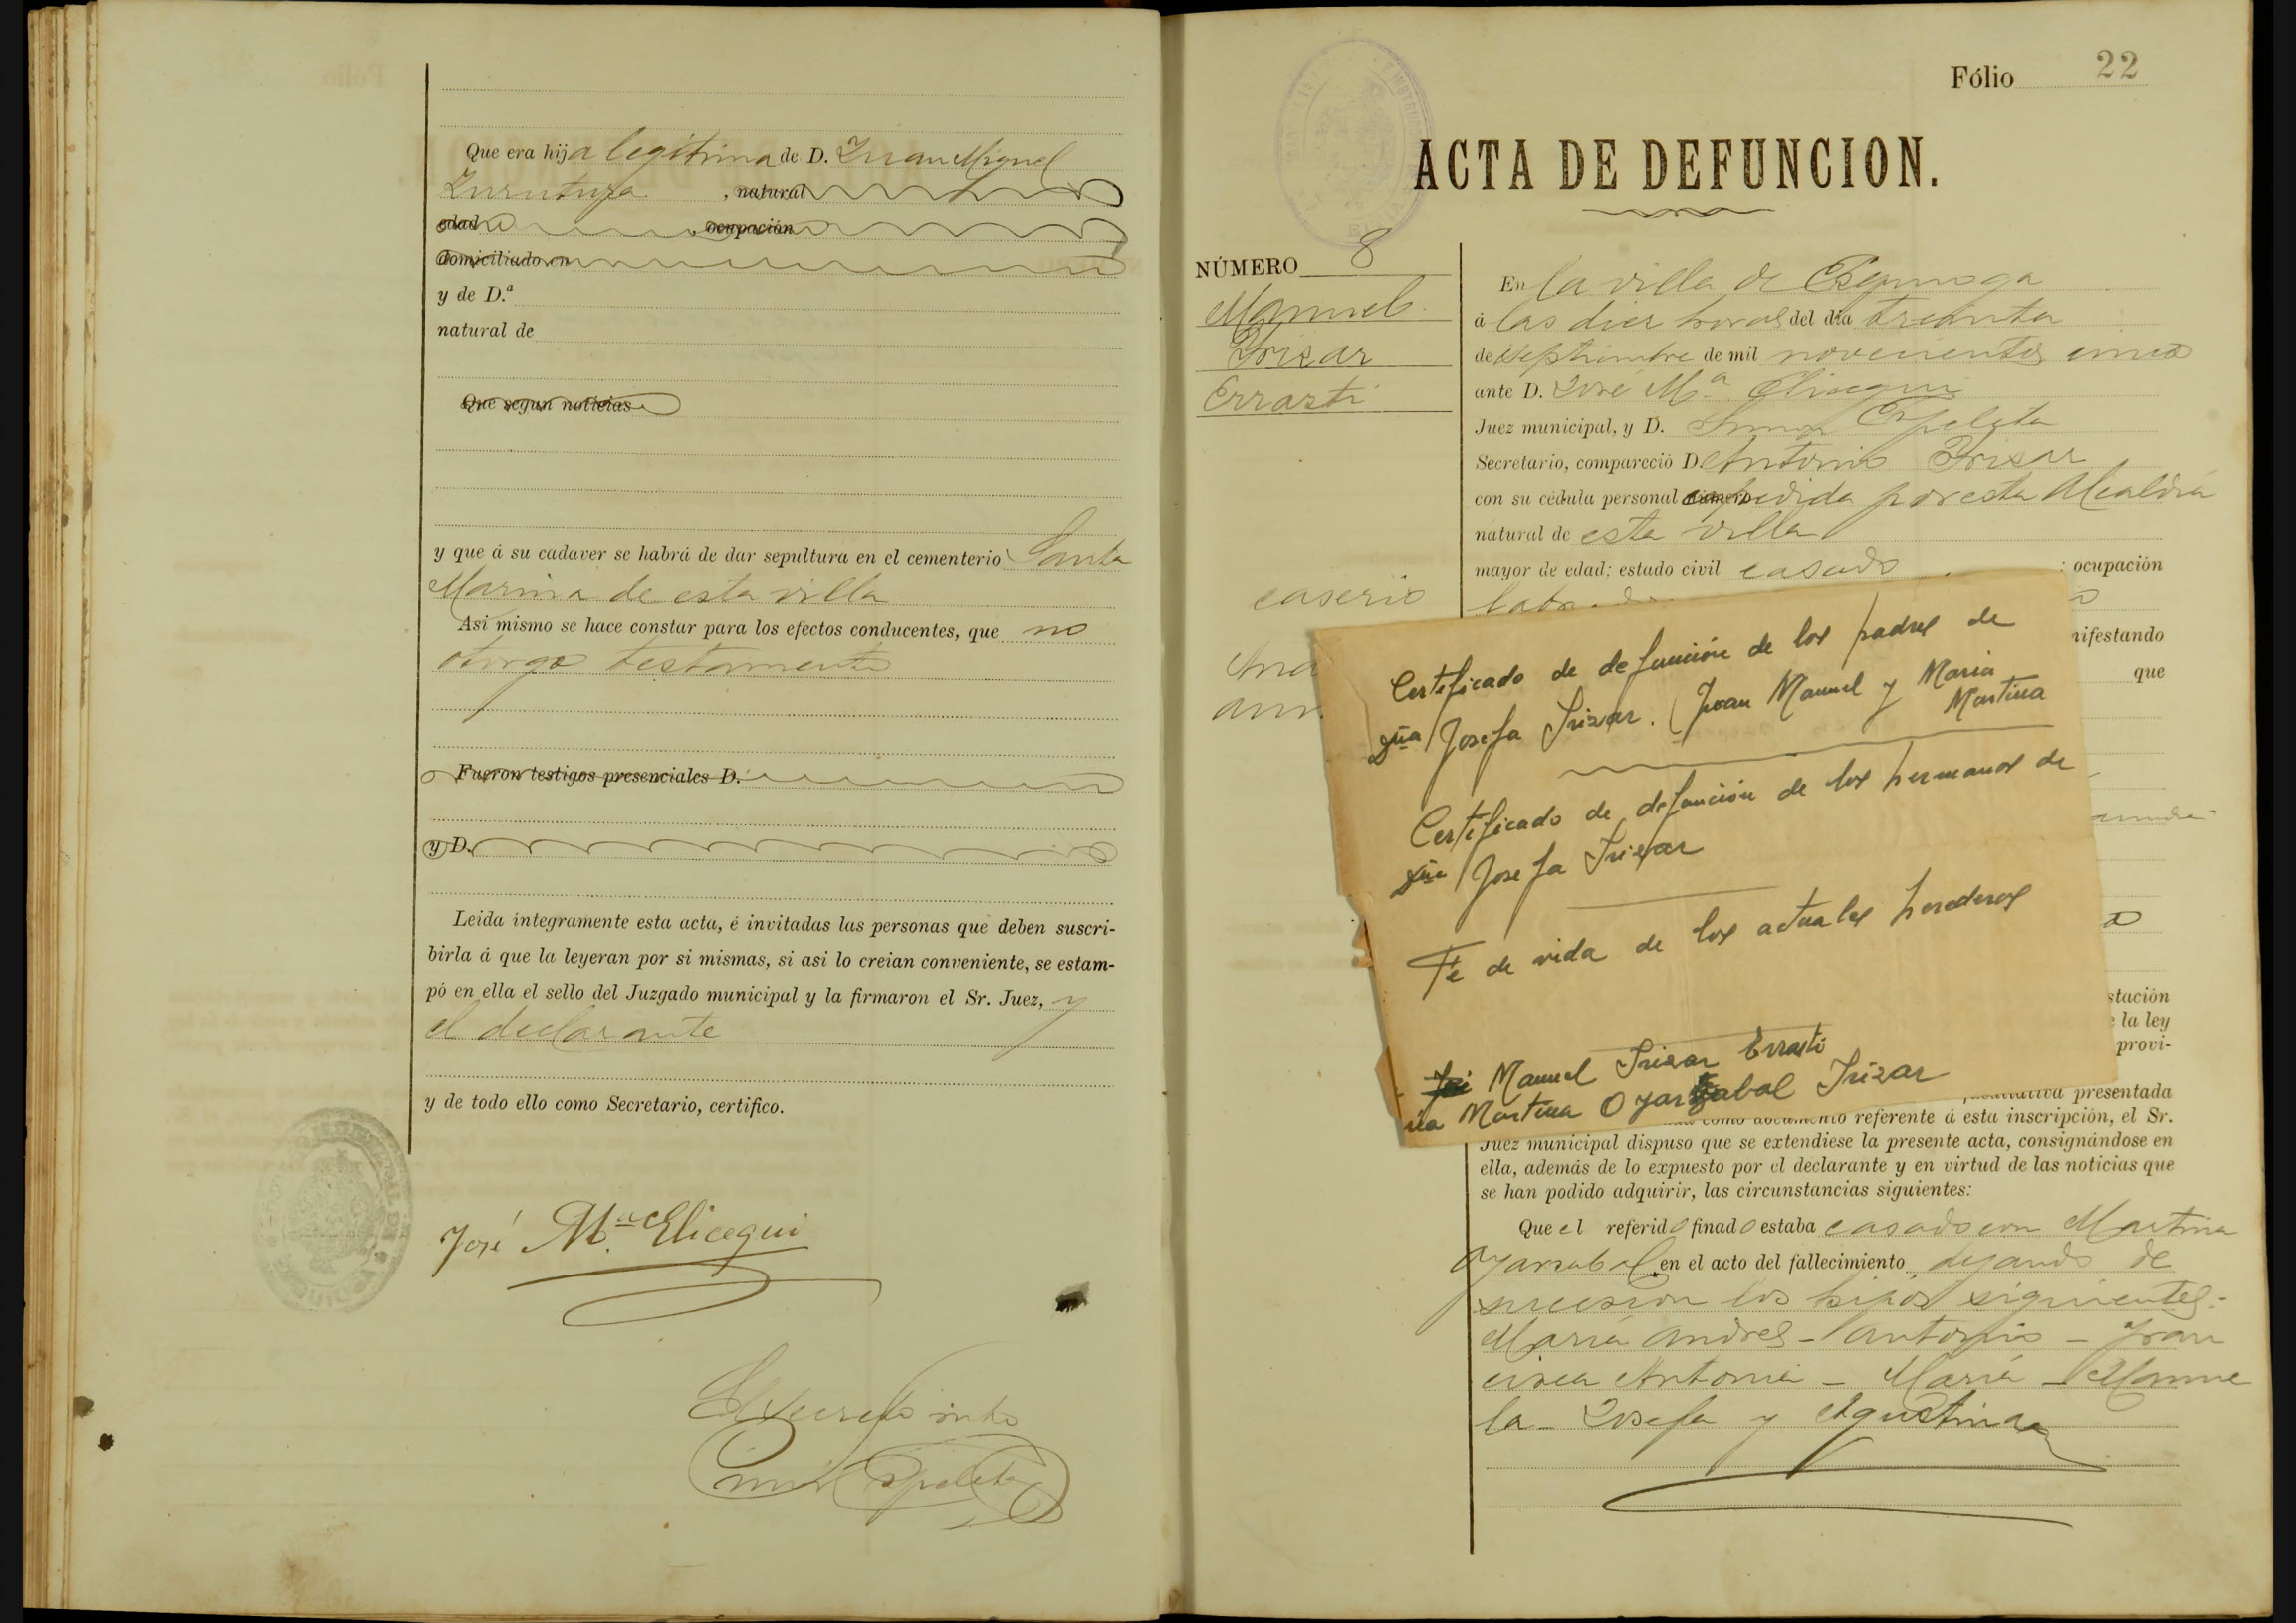 Que era hija legítima de D. Juan Miguel
Zurutuza , natural
edad ocupación
domiciliado en
y de D.ª
natural de
Que segun noticias
y que á su cadaver se habrá de dar sepultura en el cementerio Santa
Marina de esta villa
Asi mismo se hace constar para los efectos conducentes, que no
otorgo testamento
Fueron testigos presenciales D.
y D.
Leida íntegramente esta acta, é invitadas las personas que deben suscri-
birla á que la leyeran por si mismas, si asi lo creian conveniente, se estam-
pó en ella el sello del Juzgado municipal y la firmaron el Sr. Juez, y
el declarante
y de todo ello como Secretario, certifico.
José M.ª Elicegui
El Secretario
Espeleta
Fólio 22
ACTA DE DEFUNCION.
NÚMERO 8
Manuel
Irizar
Errasti
caserio
En la villa de
á las diez horas del dia treinta
de septiembre de mil novecientos uno
ante D. José M.ª Elicegui
Juez municipal, y D. Espeleta
Secretario, compareció D. Antonio Irizar
con su cédula personal número expedida por esta Alcaldía
natural de esta villa
mayor de edad; estado civil casado : ocupación
nifestando
que
Certificado de defunción de los padres de
Josefa Irizar. (Juan Manuel y María
Martina
Certificado de defunción de los hermanos de
Josefa Irizar
Fe de vida de los actuales herederos
Manuel Irizar Errasti
Martina Oyarzabal Irizar
stación
la ley
provi-
presentada
como documento referente á esta inscripción, el Sr.
Juez municipal dispuso que se extendiese la presente acta, consignándose en
ella, además de lo expuesto por el declarante y en virtud de las noticias que
se han podido adquirir, las circunstancias siguientes:
Que el referido finado estaba casado con Martina
Oyarzabal en el acto del fallecimiento, dejando de
sucesion los hijos siguientes:
María Andres - Antonio - Fran
cisca Antonia - María - Manue
la - Josefa y Agustina